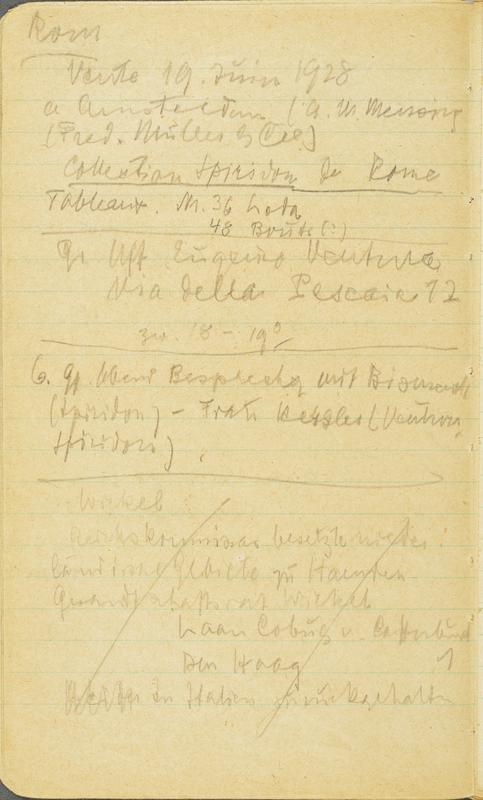 Rom
Vente 19. Juin 1928
a Amsterdam (A. W. Mensing
(Fred. Müller & Cie)
Collection Spiridon de Rome
Tableaux. N. 36 Leda
48 Bouts (?)
Gr. Uff. Eugenio Ventura
Via della Pescaia 12
zw. 18 - 19°
6. Abend Besprechg mit Bismarck
(Spiridon) - Frau Kessler (Ventura
Spiridon)
Wickel
Reichskommissar besetzte nieder
ländische Gebiete zu Haenden
Gesandtschaftsrat Wickel
Laan Cobug v.
Den Haag 1
in Italien zurückgehalten